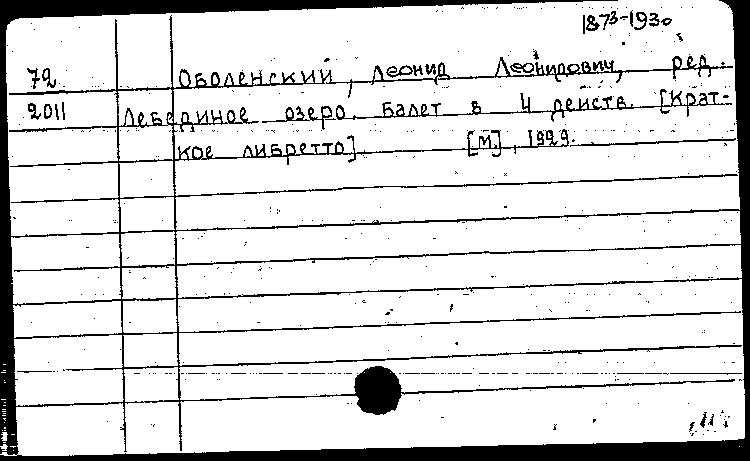 1873-1930
72 Оболенский, Леонид Леонидович, ред.
2011 Лебединое озеро. Балет в 4 действ. [Крат-
кое либретто] [М.], 1929.